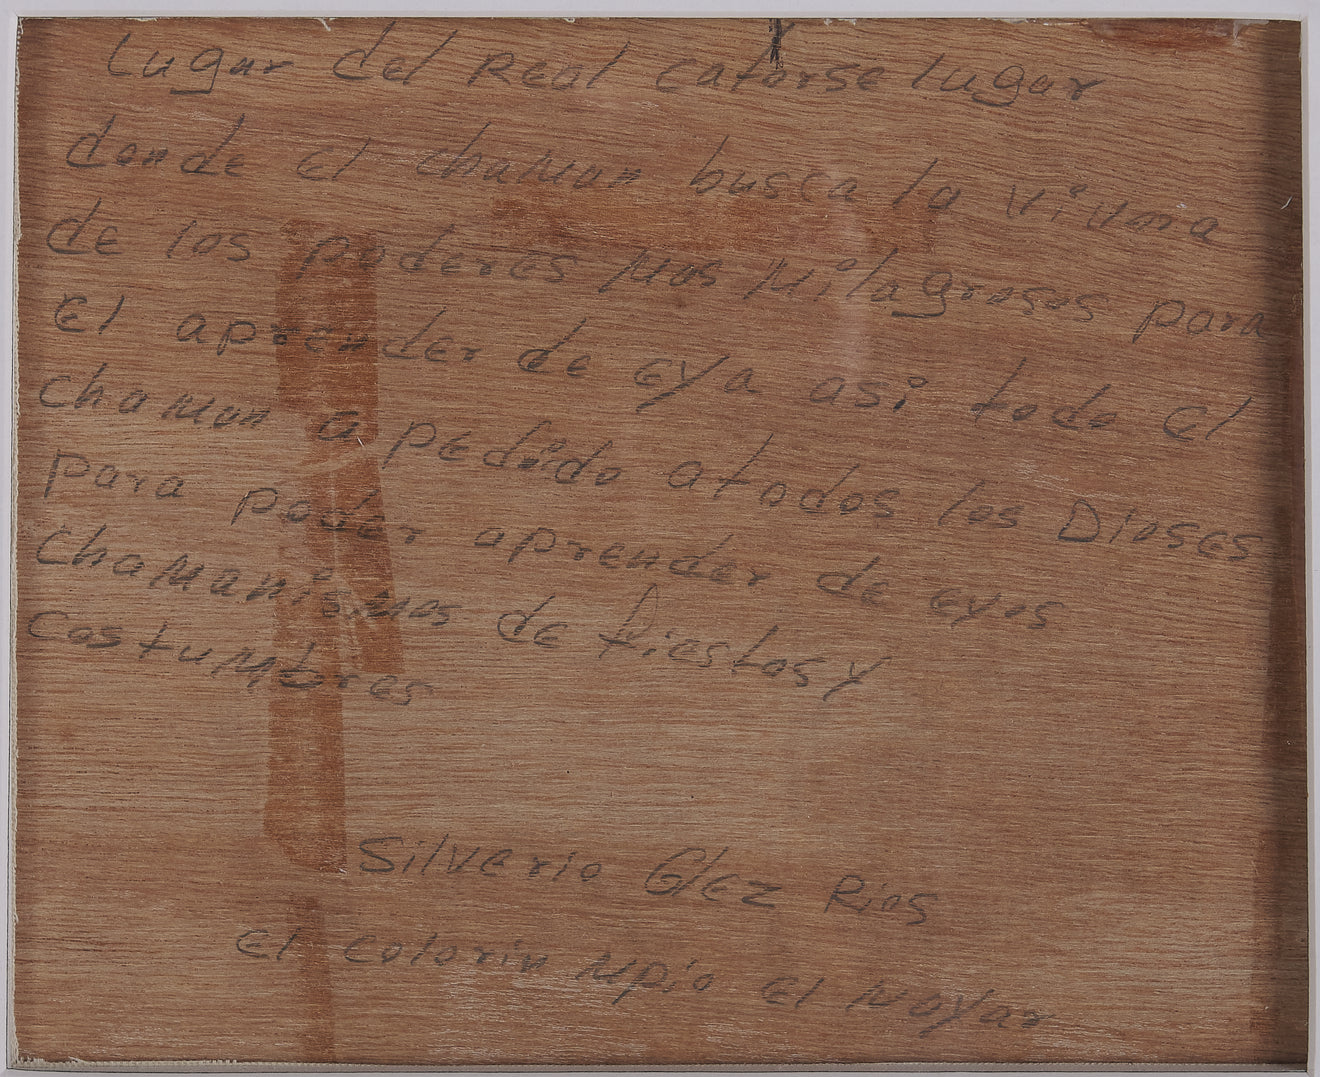 Lugar del Real catorse lugar
donde el chaman busca la
de los poderes mas milagrosos para
el aprender de eya asi todo el
chaman a pedido atodos los Dioses
para poder aprender de eyos
chamanismos de fiestas y
costumbres
Silverio Glez Rios
el colorin mpio el Nayar